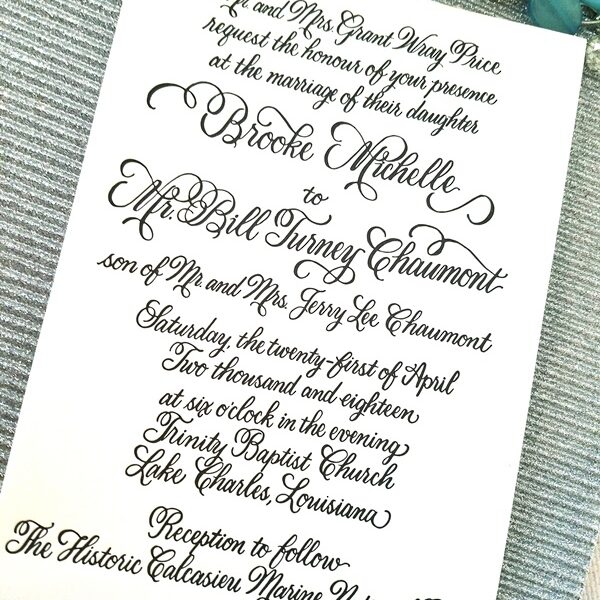 and Mrs. Grant Wray Price
request the honour of your presence
at the marriage of their daughter
Brooke Michelle
to
Mr. Bill Turney Chaumont
son of Mr. and Mrs. Jerry Lee Chaumont
Saturday, the twenty-first of April
Two thousand and eighteen
at six o'clock in the evening
Trinity Baptist Church
Lake Charles, Louisiana
Reception to follow
The Historic Calcasieu Marine